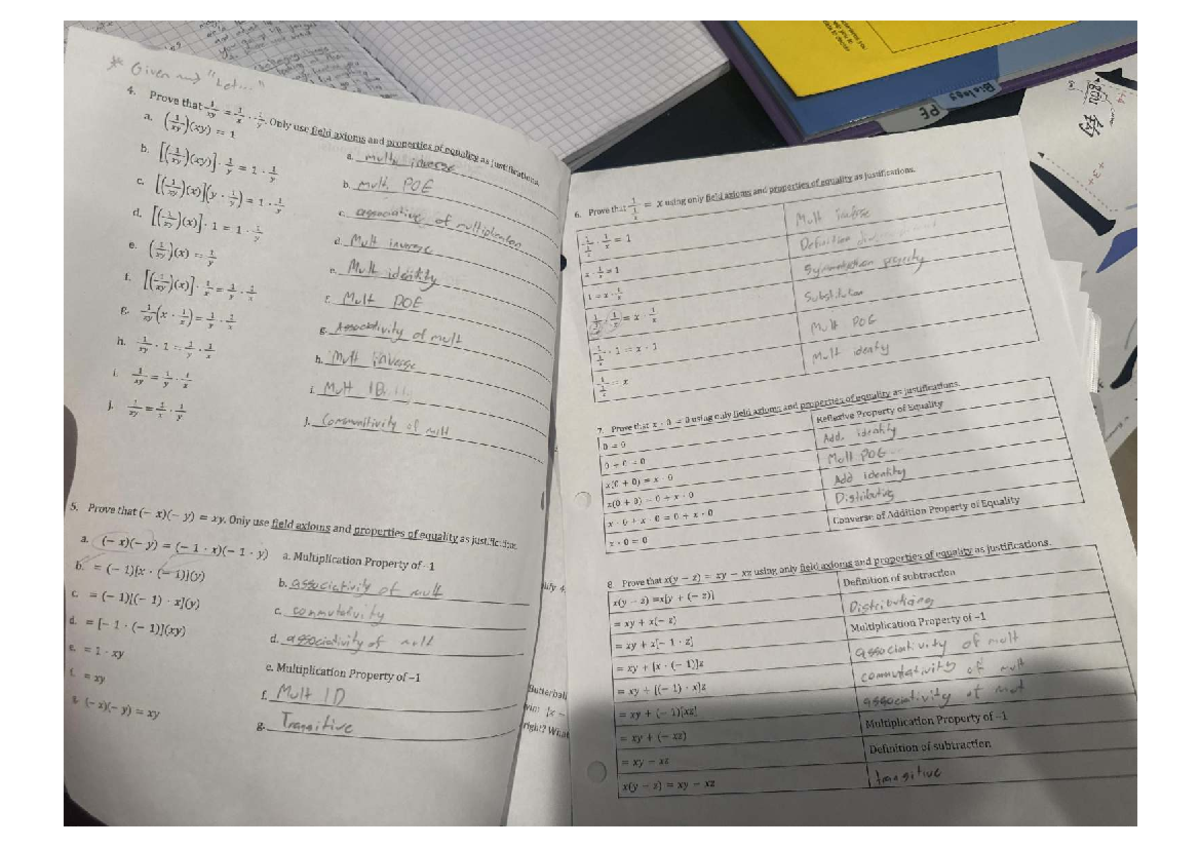 * Given and "Let..."
4. Prove that 1/xy = 1/x · 1/y. Only use field axioms and properties of equality as justifications.
a. (1/xy)(xy) = 1 a. mult inverse
b. [(1/xy)(xy)] · 1/y = 1 · 1/y b. mult, POE
c. [(1/xy)(x)](y · 1/y) = 1 · 1/y c. associative of multiplication
d. [(1/xy)(x)] · 1 = 1 · 1/y d. Mult inverse
e. (1/xy)(x) = 1/y e. Mult identity
f. [(1/xy)(x)] · 1/x = 1/y · 1/x f. Mult POE
g. 1/xy(x · 1/x) = 1/y · 1/x g. Associativity of mult
h. 1/xy · 1 = 1/y · 1/x h. Mult inverse
i. 1/xy = 1/y · 1/x i. Mult ID
j. 1/xy = 1/x · 1/y j. Commutitivity of mult
5. Prove that (− x)(− y) = xy. Only use field axioms and properties of equality as justification.
a. (− x)(− y) = (− 1 · x)(− 1 · y) a. Multiplication Property of -1
b. = (− 1)[x · (− 1)](y) b. associativity of mult
c. = (− 1)[(− 1) · x](y) c. commutativity
d. = [− 1 · (− 1)](xy) d. associativity of mult
e. = 1 · xy e. Multiplication Property of −1
f. = xy f. Mult ID
g. (− x)(− y) = xy g. Transitive
Biology
PE
6. Prove that 1/(1/x) = x using only field axioms and properties of equality as justifications.
1/(1/x) · 1/x = 1 Mult inverse
x · 1/x = 1 Definition
1 = x · 1/x Symmetrical property
1/(1/x) · 1/x = x · 1/x Substitution
1/(1/x) · 1 = x · 1 Mult POE
1/(1/x) = x Mult identity
7. Prove that x · 0 = 0 using only field axioms and properties of equality as justifications.
0 = 0 Reflexive Property of Equality
0 + 0 = 0 Add. identity
x(0 + 0) = x · 0 Mult POE
x(0 + 0) = 0 + x · 0 Add identity
x · 0 + x · 0 = 0 + x · 0 Distributing
x · 0 = 0 Converse of Addition Property of Equality
8. Prove that x(y − z) = xy − xz using only field axioms and properties of equality as justifications.
x(y − z) = x[y + (− z)] Definition of subtraction
= xy + x(− z) Distributing
= xy + x[− 1 · z] Multiplication Property of −1
= xy + [x · (− 1)]z associativity of mult
= xy + [(− 1) · x]z commutativity of mult
= xy + (− 1)[xz] associativity of mult
= xy + (− xz) Multiplication Property of −1
= xy − xz Definition of subtraction
x(y − z) = xy − xz transitive
Butterball
right? What